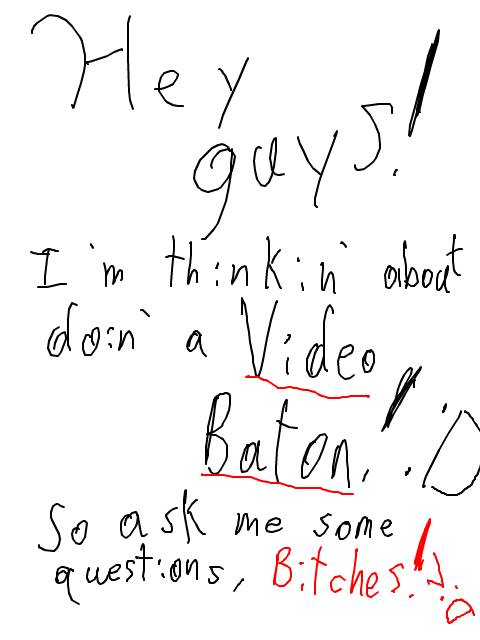 Hey
guys!
I'm thinkin' about
doin' a Video
Baton! :D
So ask me some
questions, Bitches! :D